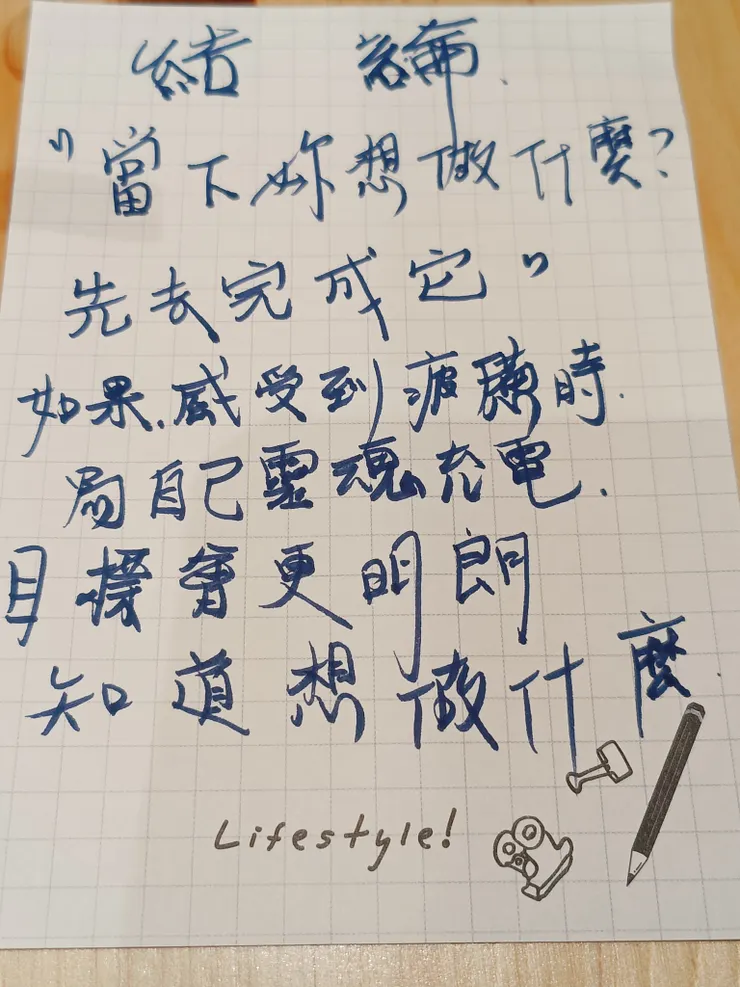 結論.
"當下妳想做什麼?
先去完成它"
如果.感受到疲時.
自己靈魂充電.
目標會更明朗
知道想做什麼
Lifestyle!